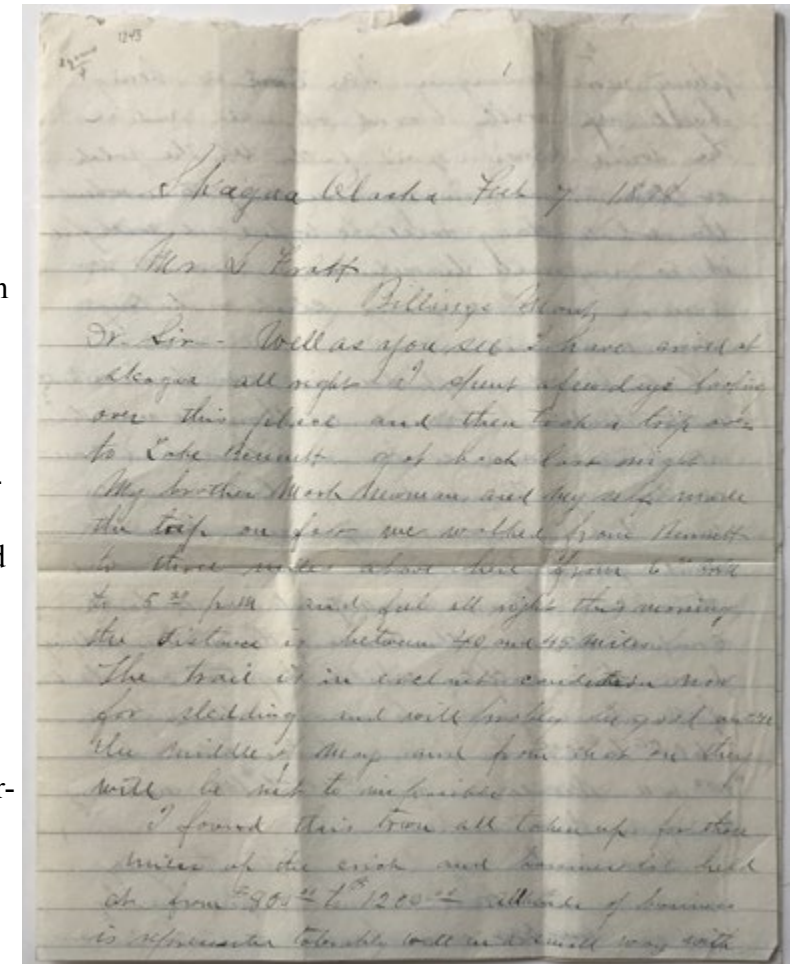 1243
1
Skagua Alaska Feb 7 1898
Mr. L Pratt
Billings Mont,
Dr. Sir - Well as you see I have arived at
Skagua all right I spent a few days looking
over this place and then took a trip over
to Lake Bennett got back last night
My brother Mark and my self made
the trip on foot we walked from Bennett
to three miles above here from 6 AM
to 5 PM and feel all right this morning
the distance is between 40 and 45 miles
The trail is in condition now
for sledding and will be good until
the middle of May and from that on they
will be next to
I found this town all taken up for three
miles up the and lots held
at from $800 to $1200 all kinds of business
is tolerably well in a small way with